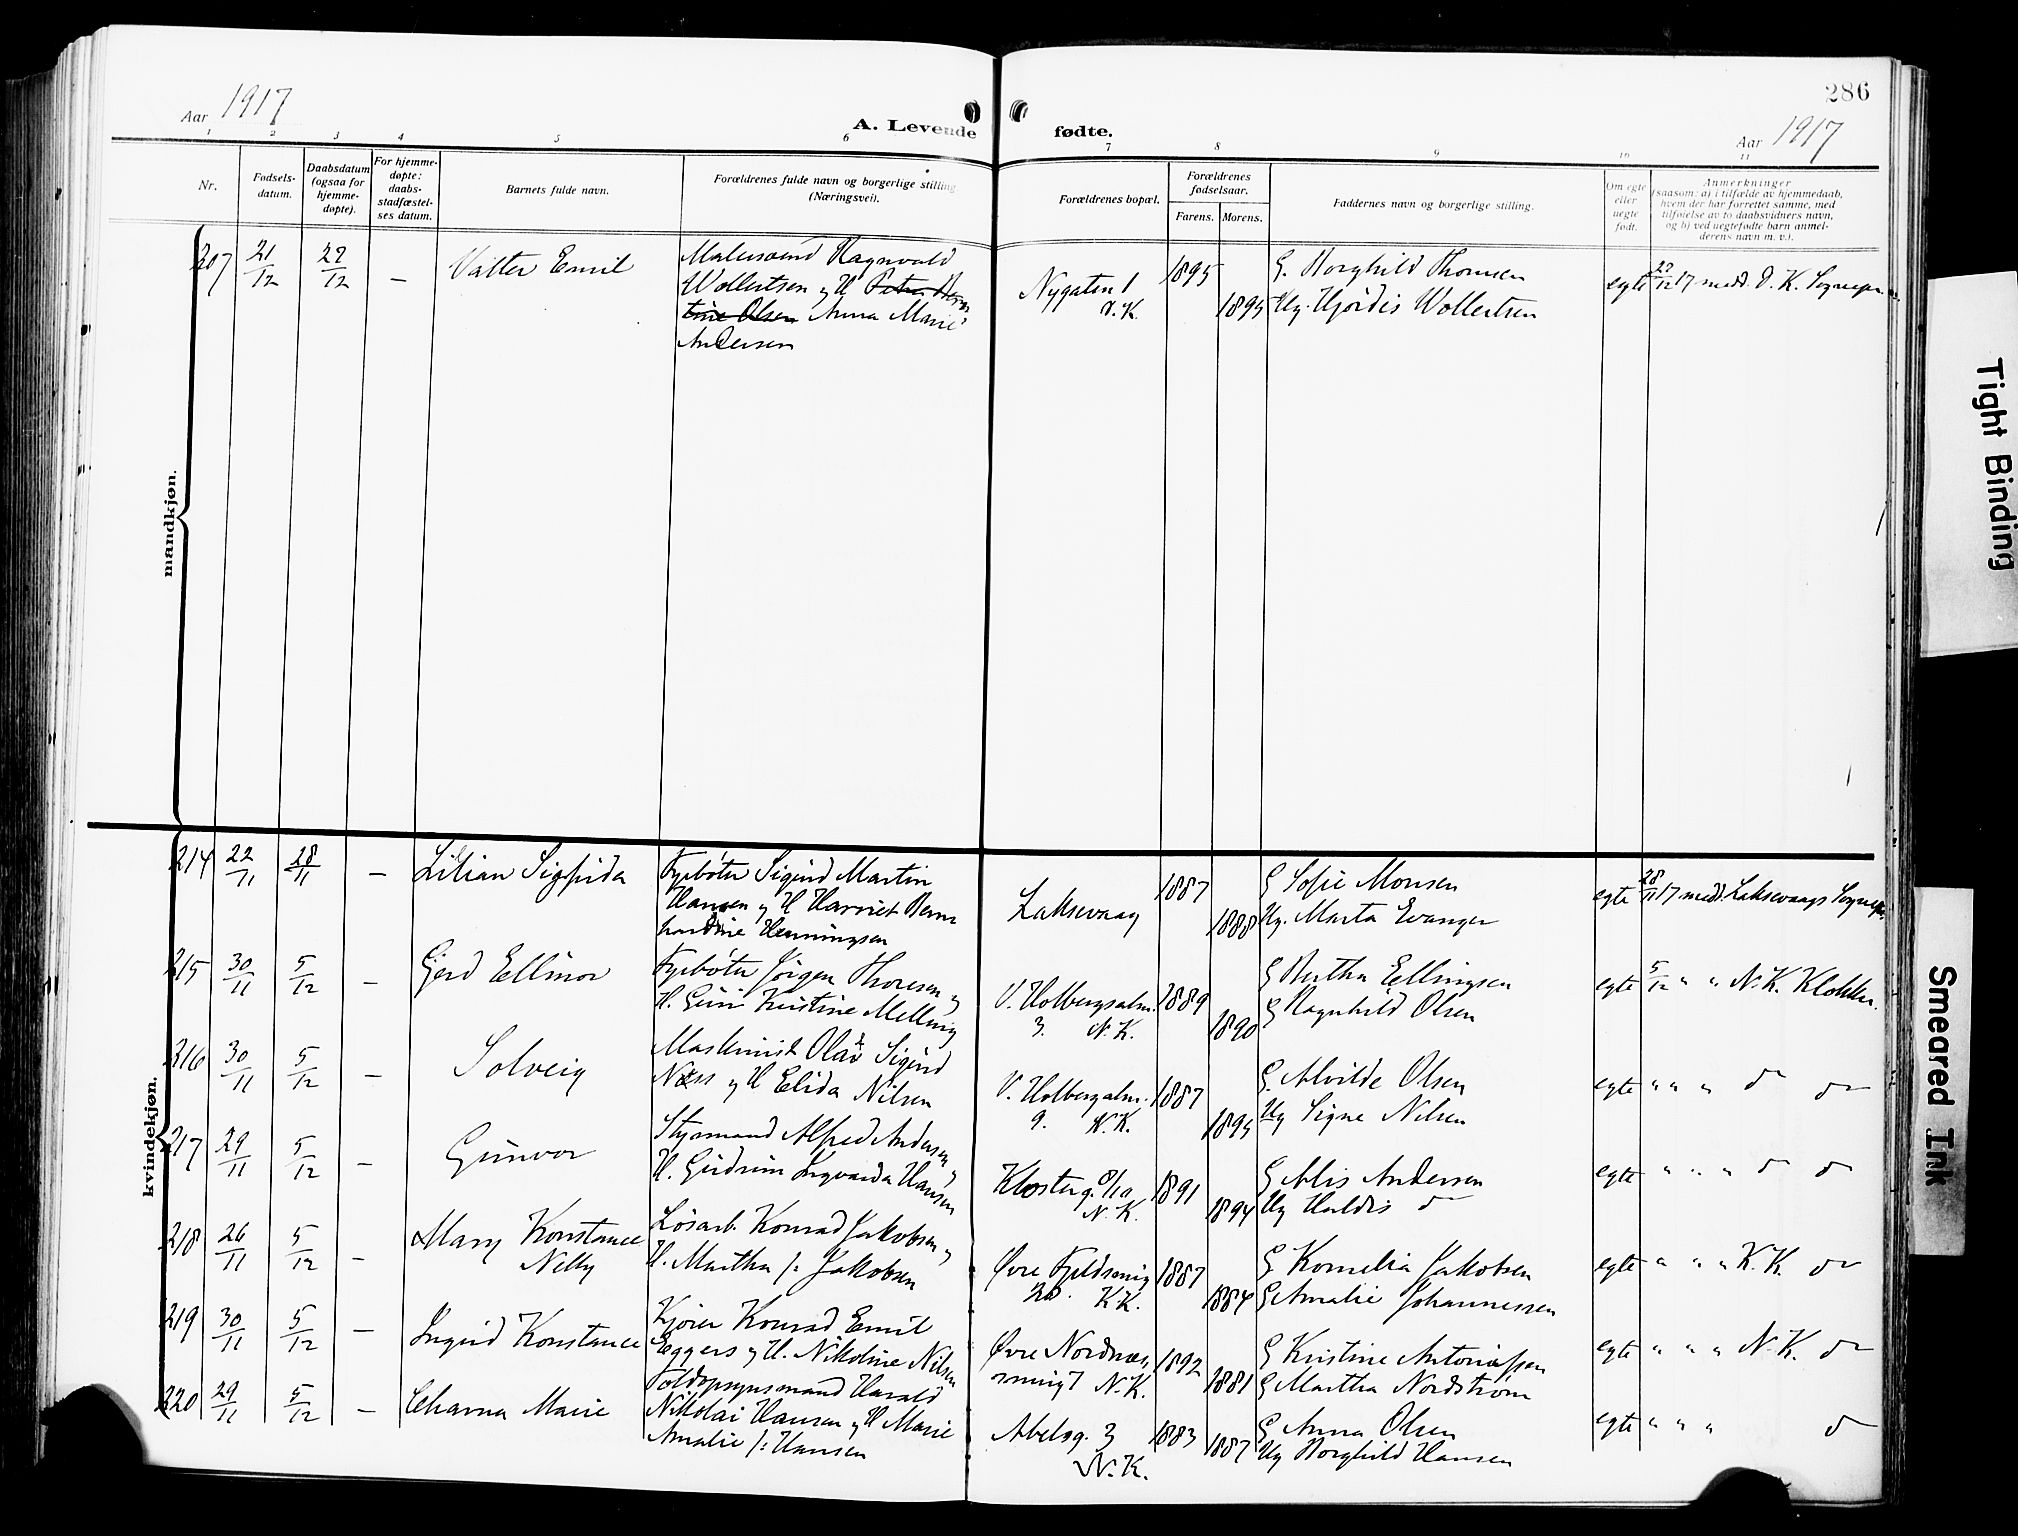 286
Aar 1917
A. Levende fødte.
Aar 1917
1 2 3 4 5 6 7 8 9 10 11
Nr.
Fødsels-
datum.
Daabsdatum
(ogsaa for
hjemme-
døpte).
For hjemme-
døpte:
daabs-
stadfæstel-
ses datum.
Barnets fulde navn.
Forældrenes fulde navn og borgerlige stilling
(Næringsvei).
Forældrenes bopæl.
Forældrenes
fødselsaar.
Farens. Morens.
Faddernes navn og borgerlige stilling.
Om egte
eller
uegte
født.
Anmerkninger
(saasom: a) i tilfælde av hjemmedaab,
hvem der har forrettet samme, med
tilføielse av to daabsvidners navn,
og b) ved uegtefødte barn anmel-
derens navn m. v.).
mandkjøn.
207 21/12 29/12 — Valter Emil
Malersvend Ragnvald
Wollertsen og H Petra Bern
tine Olsen Anna Marie
Andersen
Nygaten 1
D.K.
1895
1895
G. Borghild Thomsen
Ug. Hjördis Wollertsen
egte 29/12 17 medd. D. K. Sognepr
kvindekjøn.
214 22/11 28/11 — Lilian Sigfrida
Fyrbøter Sigurd Martin
Hansen og H Harriet Bern
hardine Henningsen
Laksevaag
1887
1888
G Sofie Monsen
Ug. Marta Evanger
egte 28/11 17 medd. Laksevaags Sognepr
215 30/11 5/12 — Gjerd Ellinor
Fyrbøter Jörgen Thoresen og
H. Guri Kristine Melling
V. Holbergsalm.
3. N.K.
1889
1890
G Bertha Ellingsen
G Ragnhild Olsen
egte 5/12 " " N. K. Klokker.
216 30/11 5/12 — Solveig
Maskinist Olav Sigurd
Næss og H Elida Nilsen
V. Holbergsalm.
9. N.K.
1887
1895
G. Alvilde Olsen
Ug Signe Nilsen
egte " " " do do
217 29/11 5/12 — Gunvor
Styrmand Alfred Andersen og
H. Gudrun Ingvarda Hansen
Klosterg. 8/10
N.K.
1891
1894
G Alis Andersen
Ug Haldis do
egte " " " do do
218 26/11 5/12 — Mary Konstance
Nelly
Løsarb. Konrad Jakobsen og
H. Martha f: Jakobsen
Øvre Fjeldsmug
20. K.K.
1887
1884
G Kornelia Jakobsen
G Amalie Johannessen
egte " " " K.K. do
219 30/11 5/12 — Ingrid Konstance
Kjører Konrad Emil
Eggers og H. Nikoline Nilsen
Øvre Nordnæs
smug 7 N.K.
1892
1881
G Kristine Antonissen
G Martha Nordstrøm
egte " " " N.K. do
220 29/11 5/12 — Charna Marie
Toldopsynsmand Harald
Nikolai Hansen og H Marie
Amalie f: Hansen
Abelsg. 3
N.K.
1883
1887
G Anna Olsen
Ug Borghild Hansen
egte " " " do
Tight Binding
Smeared Ink